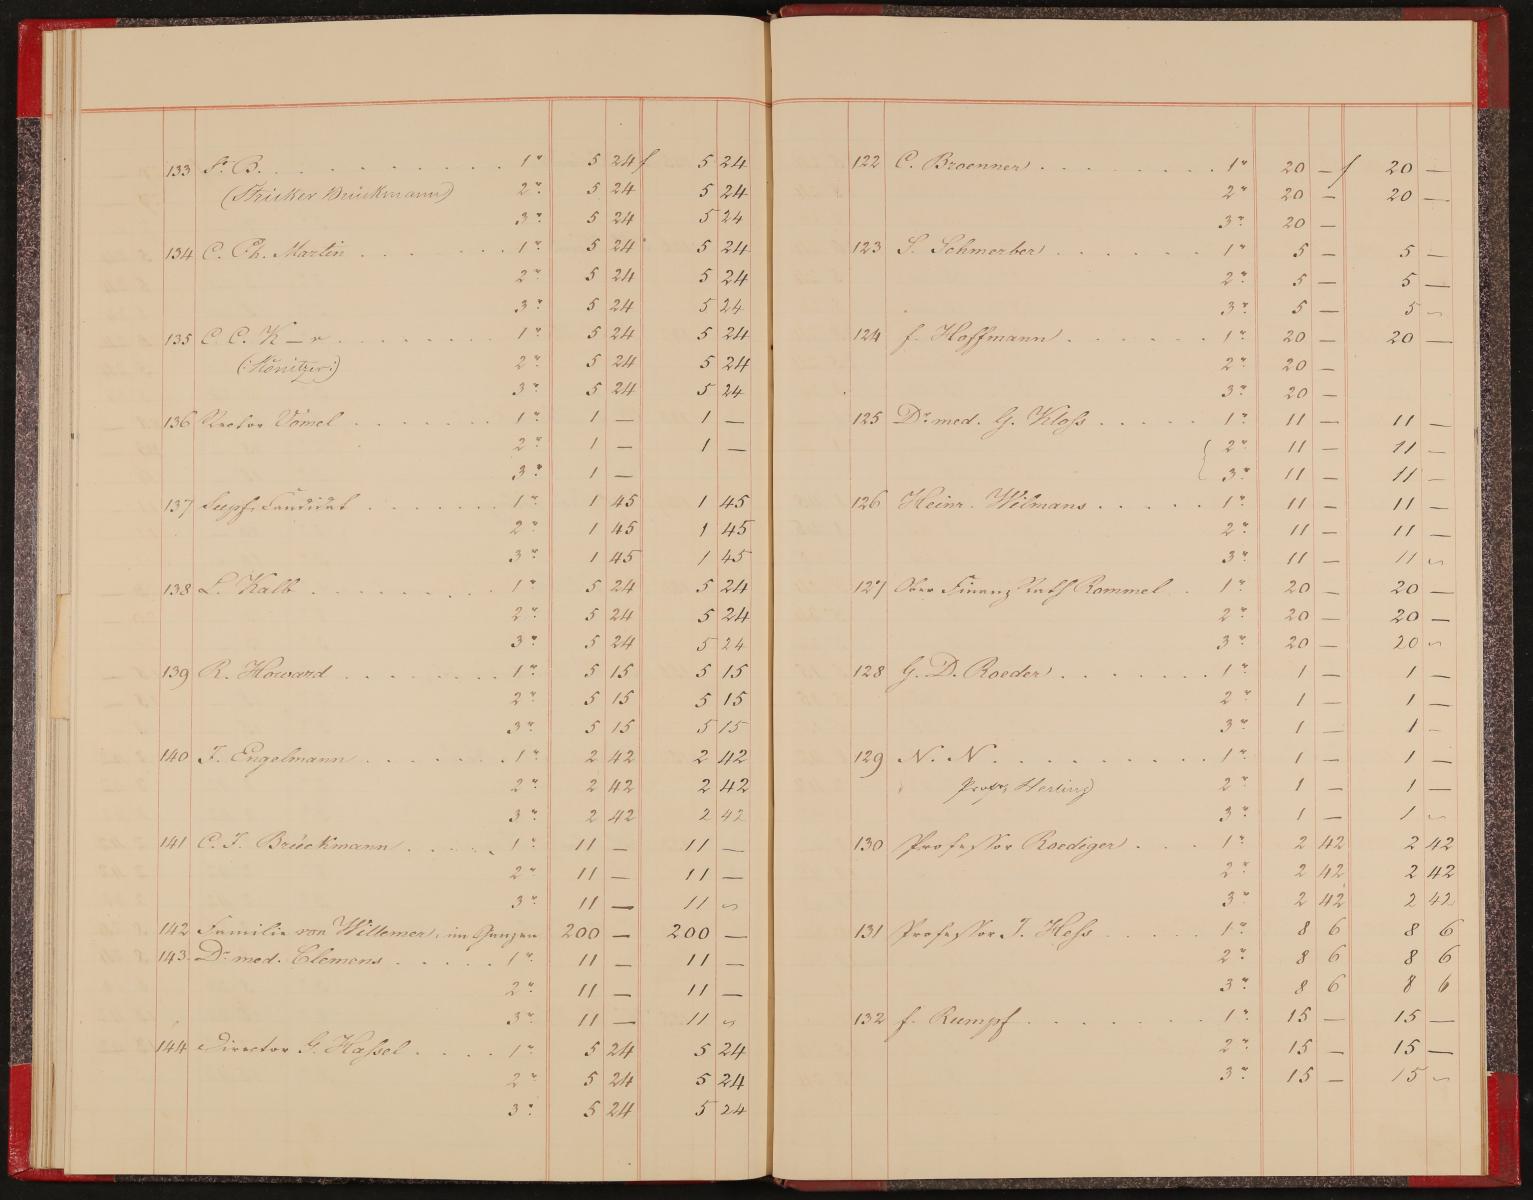 133 Fr. B. . . . . . . . . . . 1r 5 24 f 5 24
(Stricker Brückmann) 2r. 5 24 5 24
3r. 5 24 5 24
134 C. Ph. Martin . . . . . . 1r. 5 24 5 24
2r. 5 24 5 24
3r 5 24 5 24
135 C. C. K — r . . . . . . . 1r. 5 24 5 24
2r. 5 24 5 24
3r. 5 24 5 24
136 Rector Vömel . . . . . . 1r. 1 — 1 —
2r. 1 — 1 —
3r. 1 —
137 Candidat . . . . . . 1r. 1 45 1 45
2r. 1 45 1 45
3r. 1 45 1 45
138 L. Kalb . . . . . . . . 1r 5 24 5 24
2r. 5 24 5 24
3r. 5 24 5 24
139 R. Howard . . . . . . . 1r. 5 15 5 15
2r. 5 15 5 15
3r. 5 15 5 15
140 J. Engelmann . . . . . . 1r. 2 42 2 42
2r. 2 42 2 42
3r. 2 42 2 42
141 C. J. Brückmann . . . . . 1r. 11 — 11 —
2r. 11 — 11 —
3r. 11 — 11 ~
142 Familie von Willemer, im Ganzen 200 — 200 —
143. Dr. med. Clemens . . . . . 1r. 11 — 11 —
2r. 11 — 11 —
3r. 11 — 11 ~
144 Director G. Hassel . . . . 1r. 5 24 5 24
2r. 5 24 5 24
3r. 5 24 5 24
122 C. Broenner . . . . . . . 1r 20 — f 20 —
2r 20 — 20 —
3r. 20 —
123 S. Schmerber . . . . . . 1r 5 — 5 —
2r. 5 — 5 —
3r. 5 — 5 ~
124 f. Hoffmann . . . . . . 1r. 20 — 20 —
2r. 20 —
3r. 20 —
125 Dr. med. G. Kloß . . . . . 1r. 11 — 11 —
2r. 11 — 11 —
3r. 11 — 11 —
126 Heinr. Wilmans . . . . . 1r. 11 — 11 —
2r. 11 — 11 —
3r. 11 — 11 ~
127 Ober Finanz Rath Rommel . . 1r. 20 — 20 —
2r. 20 — 20 —
3r. 20 — 20 ~
128 G. D. Roeder . . . . . . . 1r. 1 — 1 —
2r. 1 — 1 —
3r. 1 — 1 -
129 N. N. . . . . . . . . . 1r. 1 — 1 —
Profr. Herling 2r 1 — 1 —
3r. 1 — 1 ~
130 Professor Roediger . . . 1r. 2 42 2 42
2r. 2 42 2 42
3r. 2 42 2 42
131 Professor J. Hess . . . . . 1r. 8 6 8 6
2r. 8 6 8 6
3r. 8 6 8 6
132 f. Rumpf . . . . . . . 1r. 15 — 15 —
2r. 15 — 15 —
3r. 15 — 15 ~